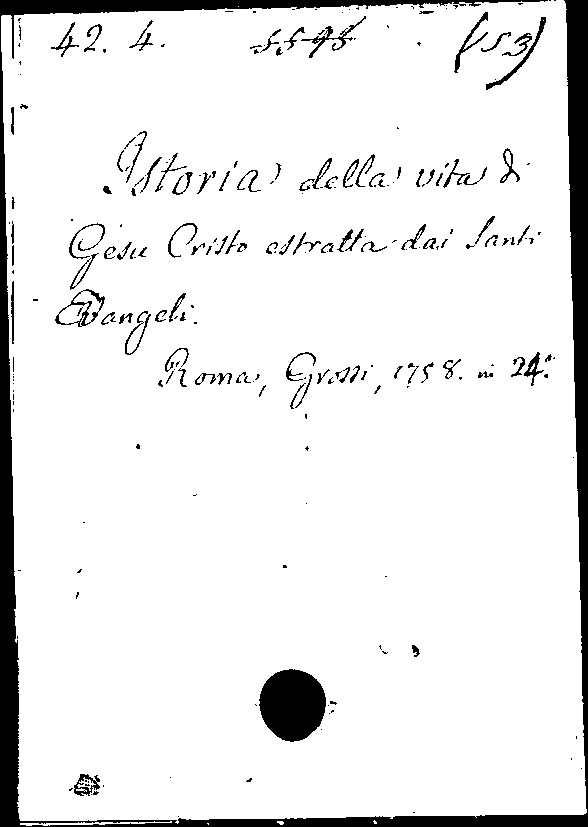 42. 4. 5598 (53)
Istoria della vita di
Gesu Cristo estratta dai Santi
Evangeli.
Roma, Grossi, 1758. in 24.°